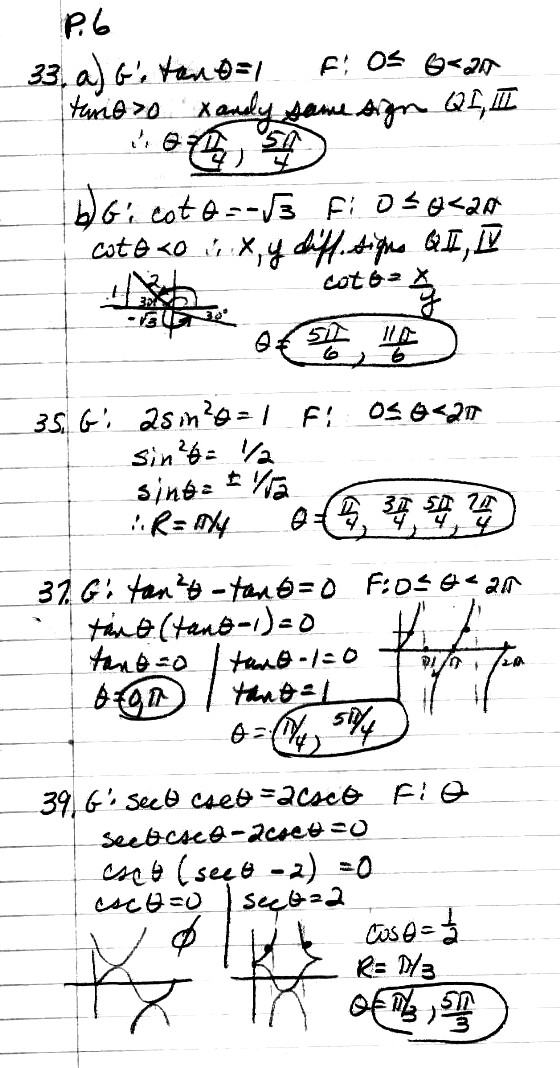 P.6
33. a) G: tan θ = 1 F: 0 ≤ θ < 2π
tan θ > 0 x and y same sign QI, III
∴ θ = π/4, 5π/4
b) G: cot θ = -√3 F: 0 ≤ θ < 2π
cot θ < 0 ∴ x, y diff. signs QII, IV
cot θ = x/y
1 2 30° -√3 30°
θ = 5π/6, 11π/6
35. G: 2sin²θ = 1 F: 0 ≤ θ < 2π
sin²θ = 1/2
sin θ = ± 1/√2
∴ R = π/4 θ = π/4, 3π/4, 5π/4, 7π/4
37. G: tan²θ - tan θ = 0 F: 0 ≤ θ < 2π
tan θ (tan θ - 1) = 0
tan θ = 0 | tan θ - 1 = 0
θ = 0, π | tan θ = 1
π 2π
θ = π/4, 5π/4
39. G: sec θ csc θ = 2csc θ F: θ
sec θ csc θ - 2csc θ = 0
csc θ (sec θ - 2) = 0
csc θ = 0 | sec θ = 2
∅ cos θ = 1/2
R = π/3
θ = π/3, 5π/3